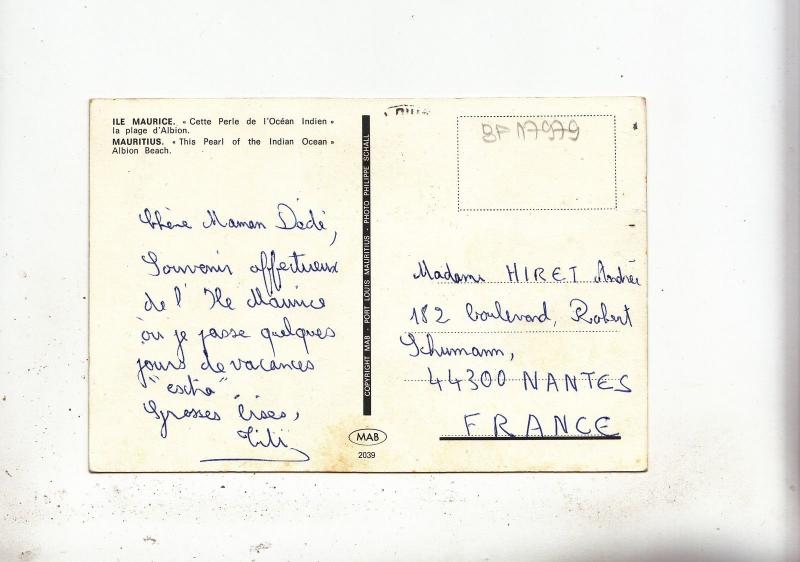 ILE MAURICE. « Cette Perle de l'Océan Indien »
la plage d'Albion.
MAURITIUS. « This Pearl of the Indian Ocean »
Albion Beach.
Chère Maman Dédé,
Souvenir affectueux
de l'Ile Maurice
où je passe quelques
jours de vacances
"extra"
Grosses bises,
Titi
COPYRIGHT MAB - PORT LOUIS MAURITIUS - PHOTO PHILIPPE SCHALL
MAB
2039
BP 17979
Madame HIRET Andrée
182 boulevard, Robert
Schumann,
44300 NANTES
FRANCE